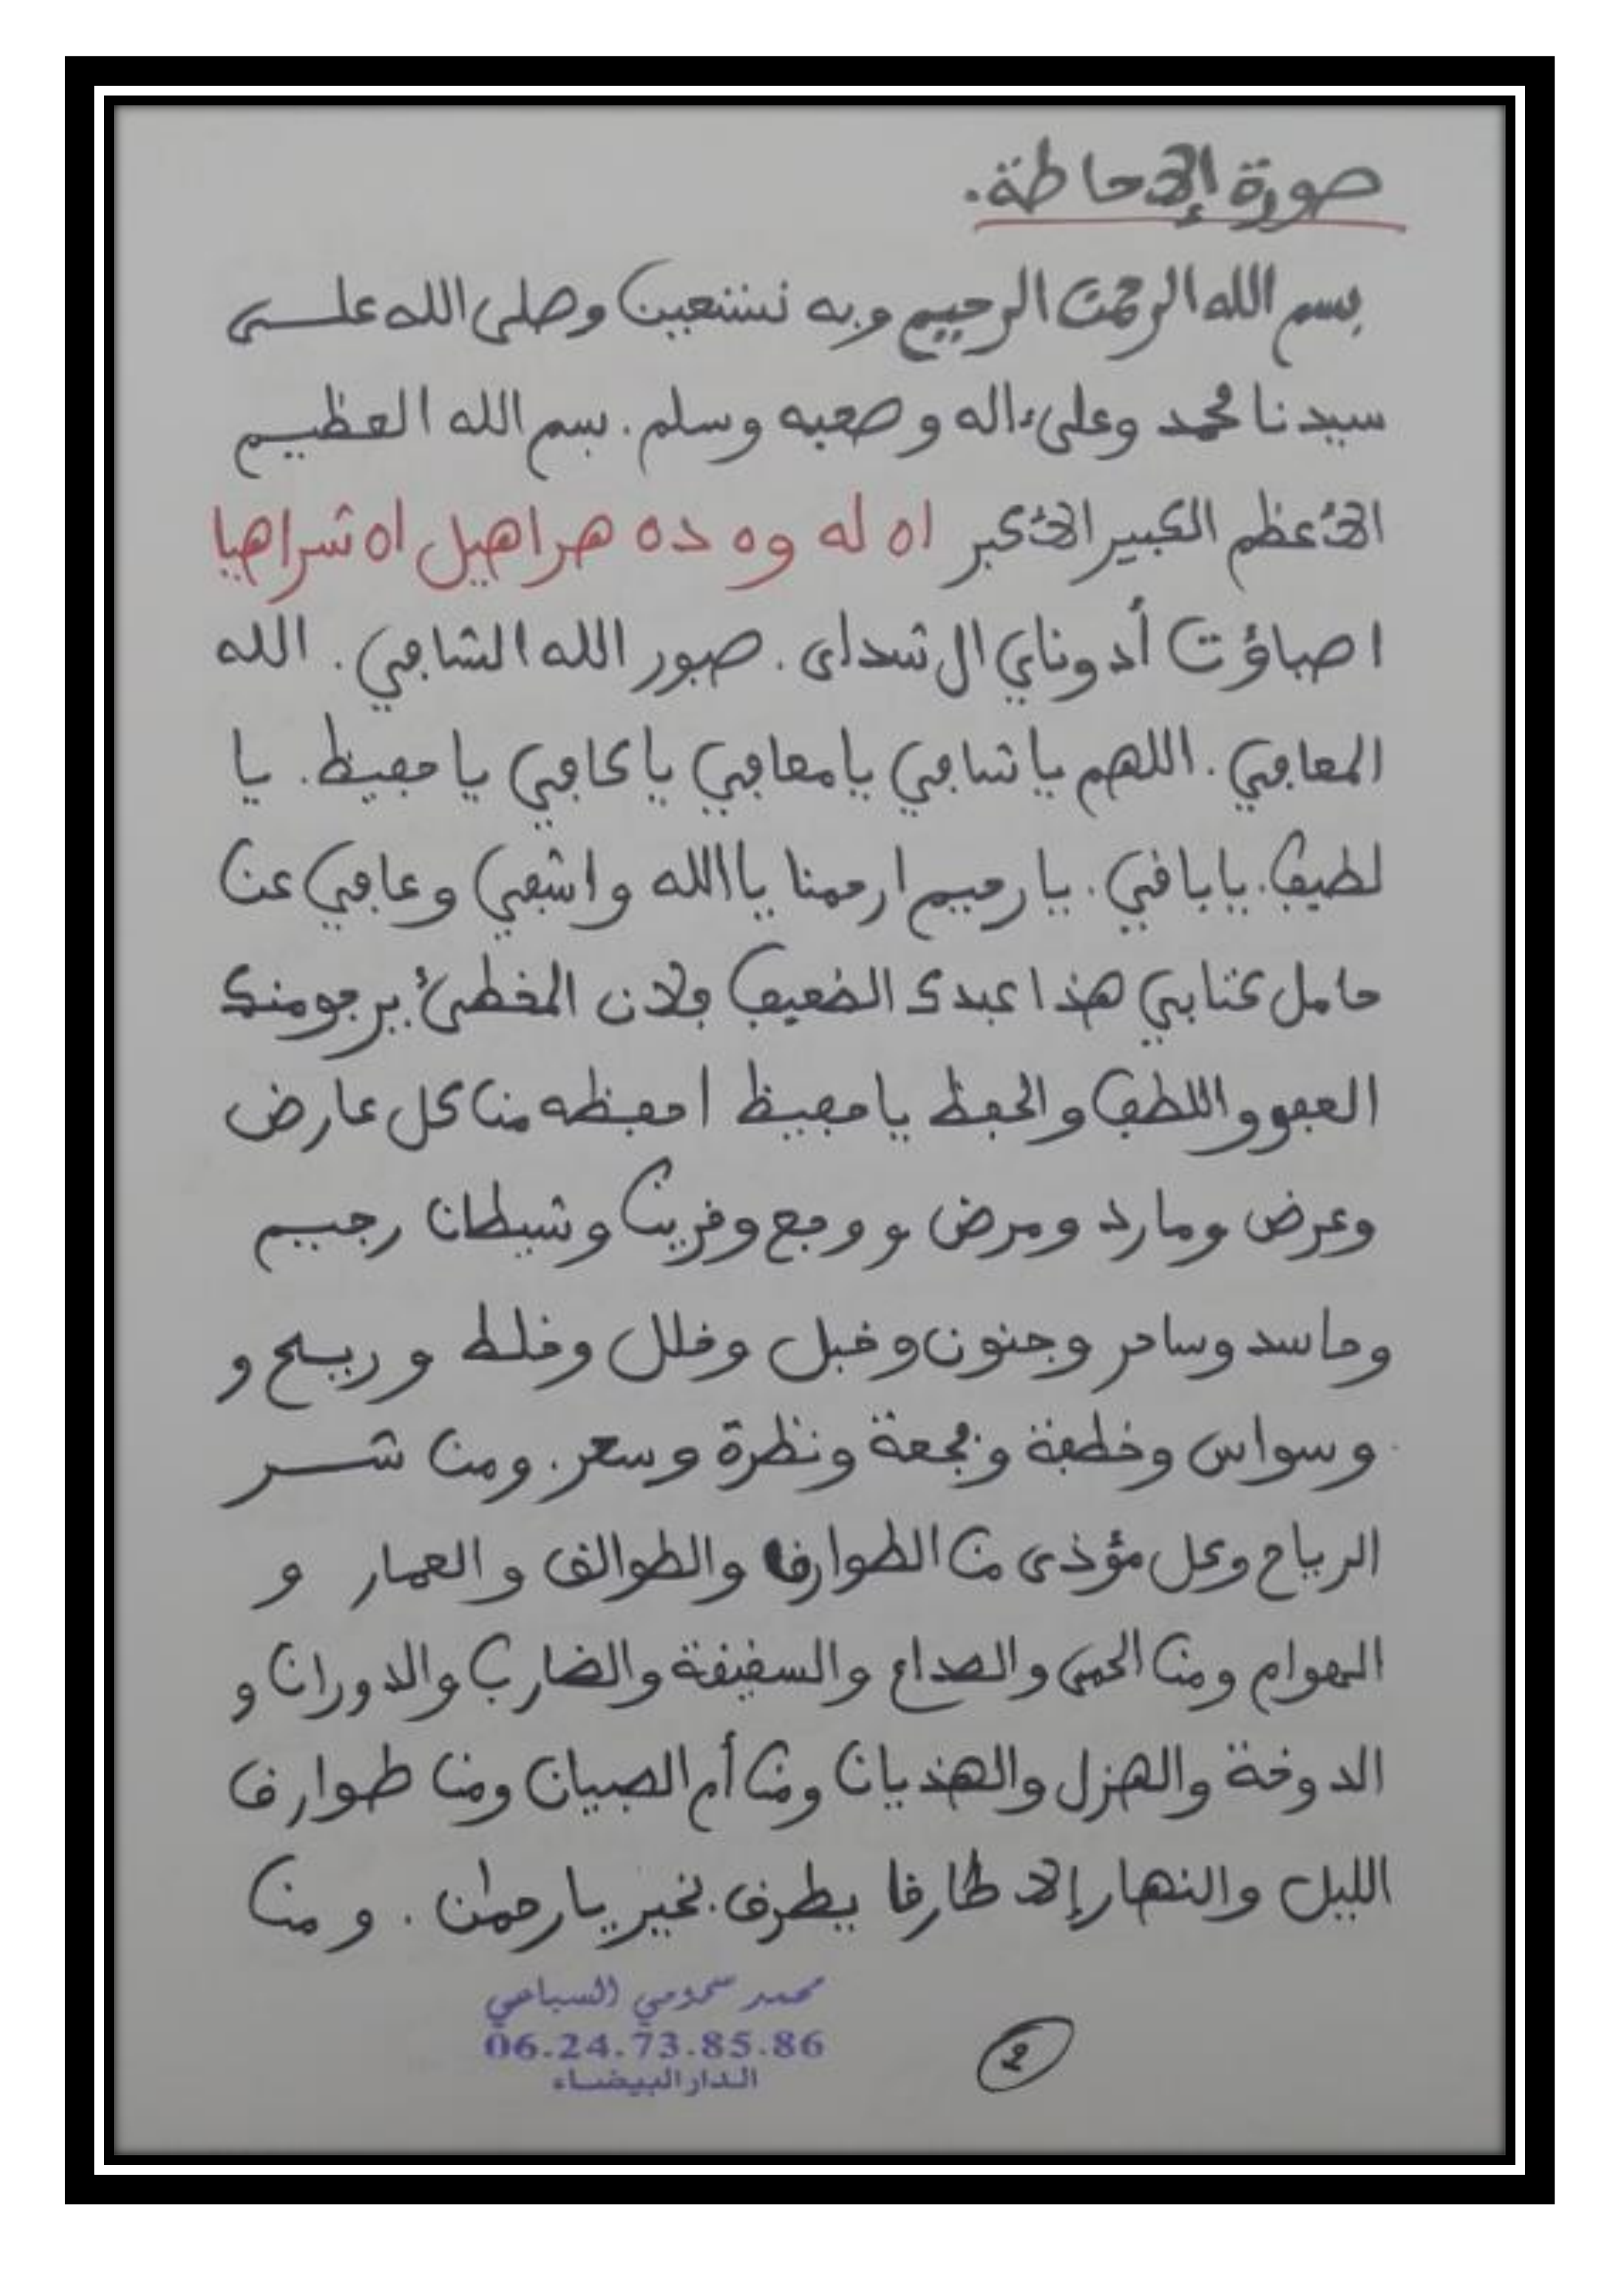 صورة الإحاطة.
بسم الله الرحمن الرحيم وبه نستعين وصلى الله على
سيدنا محمد وعلى ءاله وصحبه وسلم. بسم الله العظيم
الأعظم الكبير الأكبر اه له وه ده هراهيل اه شراهيا
اصباؤت أدوناي ال شداى. صبور الله الشافي. الله
المعافي. اللهم يا شافي يا معافي يا كافي يا حفيظ. يا
لطيف. يا باقي. يا رحيم ارحمنا يا الله واشفي وعافي عن
حامل كتابي هذا عبدك الضعيف فلان المخطئ يرجو منك
العفو واللطف والحفظ يا حفيظ احفظه من كل عارض
وعرض ومارد ومرض و وجع وقرين وشيطان رجيم
وحاسد وساحر وجنون وخبل وخلل وخلط و ريح و
وسواس وخطفة وفجعة ونظرة وسحر. ومن شر
الرياح وكل مؤذى من الطوارق والطوالق والعمار و
الهوام ومن الحمى والصداع والسقيقة والضارب والدوران و
الدوخة والهزل والهذيان ومن أم الصبيان ومن طوارق
الليل والنهار إلا طارقا يطرق بخير يا رحمٰن. ومن
محمد سحومي السباعي
06.24.73.85.86
الدار البيضاء
2